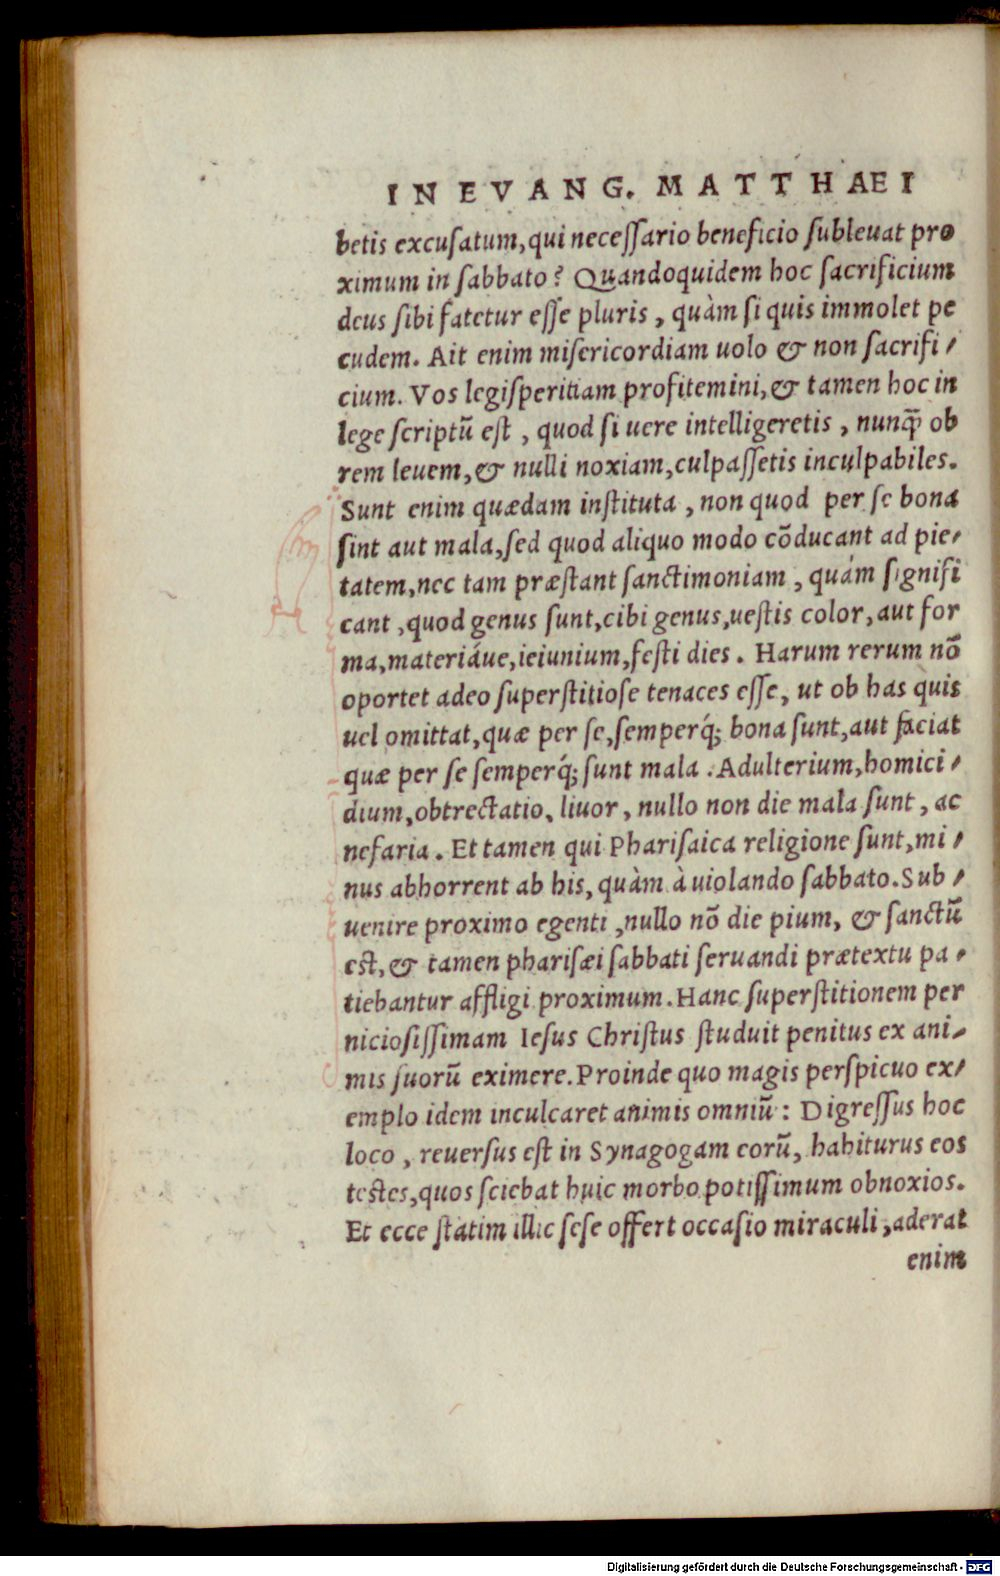 IN EVANG. MATTHAEI
betis excuſatum, qui neceſſario beneficio ſubleuat pro
ximum in ſabbato? Quandoquidem hoc ſacrificium
deus ſibi fatetur eſſe pluris, quàm ſi quis immolet pe
cudem. Ait enim miſericordiam uolo & non ſacrifi-
cium. Vos legiſperitiam profitemini, & tamen hoc in
lege ſcriptū eſt, quod ſi uere intelligeretis, nunq̃ ob
rem leuem, & nulli noxiam, culpaſſetis inculpabiles.
Sunt enim quædam inſtituta, non quod per ſe bona
ſint aut mala, ſed quod aliquo modo cōducant ad pie-
tatem, nec tam præſtant ſanctimoniam, quàm ſignifi
cant, quod genus ſunt, cibi genus, ueſtis color, aut for
ma, materiáue, ieiunium, feſti dies. Harum rerum nō
oportet adeo ſuperſtitioſe tenaces eſſe, ut ob has quis
uel omittat, quæ per ſe, ſemperq́; bona ſunt, aut faciat
quæ per ſe ſemperq́; ſunt mala. Adulterium, homici-
dium, obtrectatio, liuor, nullo non die mala ſunt, ac
nefaria. Et tamen qui Phariſaica religione ſunt, mi-
nus abhorrent ab his, quàm à uiolando ſabbato. Sub-
uenire proximo egenti, nullo nō die pium, & ſanctū
eſt, & tamen phariſæi ſabbati ſeruandi prætextu pa-
tiebantur affligi proximum. Hanc ſuperſtitionem per
nicioſiſſimam Ieſus Chriſtus ſtuduit penitus ex ani-
mis ſuorū eximere. Proinde quo magis perſpicuo ex-
emplo idem inculcaret animis omniū: Digreſſus hoc
loco, reuerſus eſt in Synagogam eorū, habiturus eos
teſtes, quos ſciebat huic morbo potiſſimum obnoxios.
Et ecce ſtatim illic ſeſe offert occaſio miraculi, aderat
enim
Digitalisierung gefördert durch die Deutsche Forschungsgemeinschaft - DFG